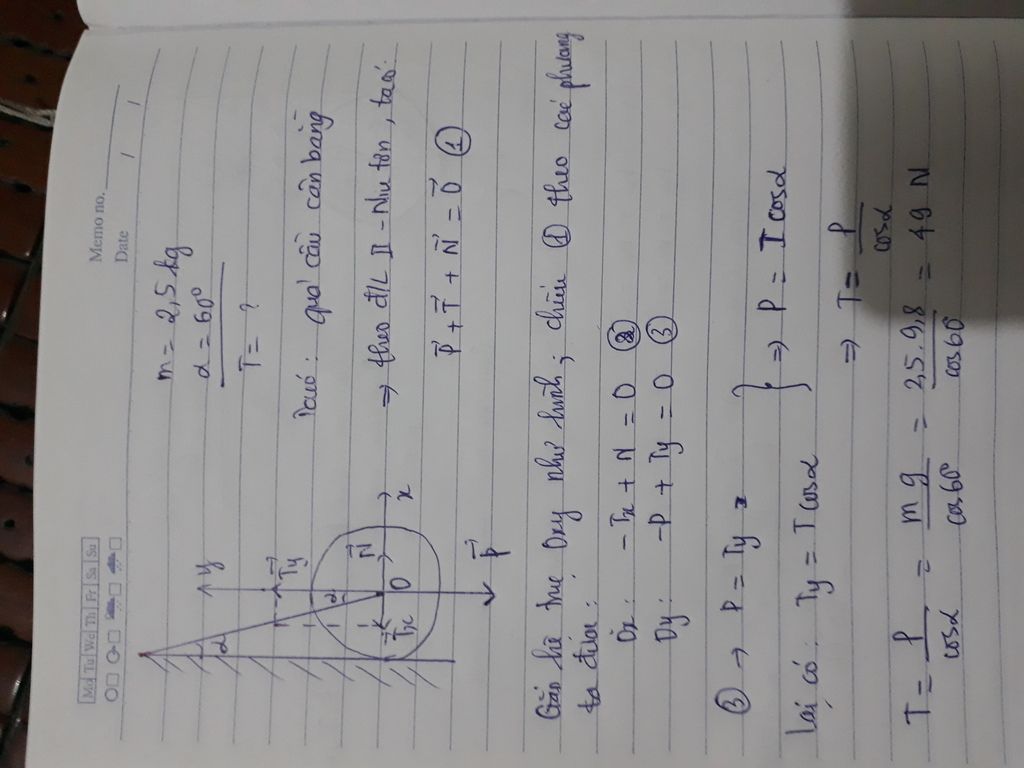 Mo Tu We Th Fr Sa Su
Memo no.
Date / /
m = 2,5 kg
α = 60°
T = ?
Ta có: quả cầu cân bằng
⇒ theo đ/L II - Niu tơn, ta có:
P⃗ + T⃗ + N⃗ = 0⃗ ①
y
α
T⃗y
α
N⃗
T⃗x
O
x
P⃗
Gắn hệ trục Oxy như hình; chiếu ① theo các phương
ta được:
Ox: -Tx + N = 0 ②
Oy: -P + Ty = 0 ③
③ → P = Ty
Lại có: Ty = T cosα
} ⇒ P = T cosα
⇒ T = P / cosα
T = P / cosα = mg / cos60° = 2,5.9,8 / cos60° = 49 N